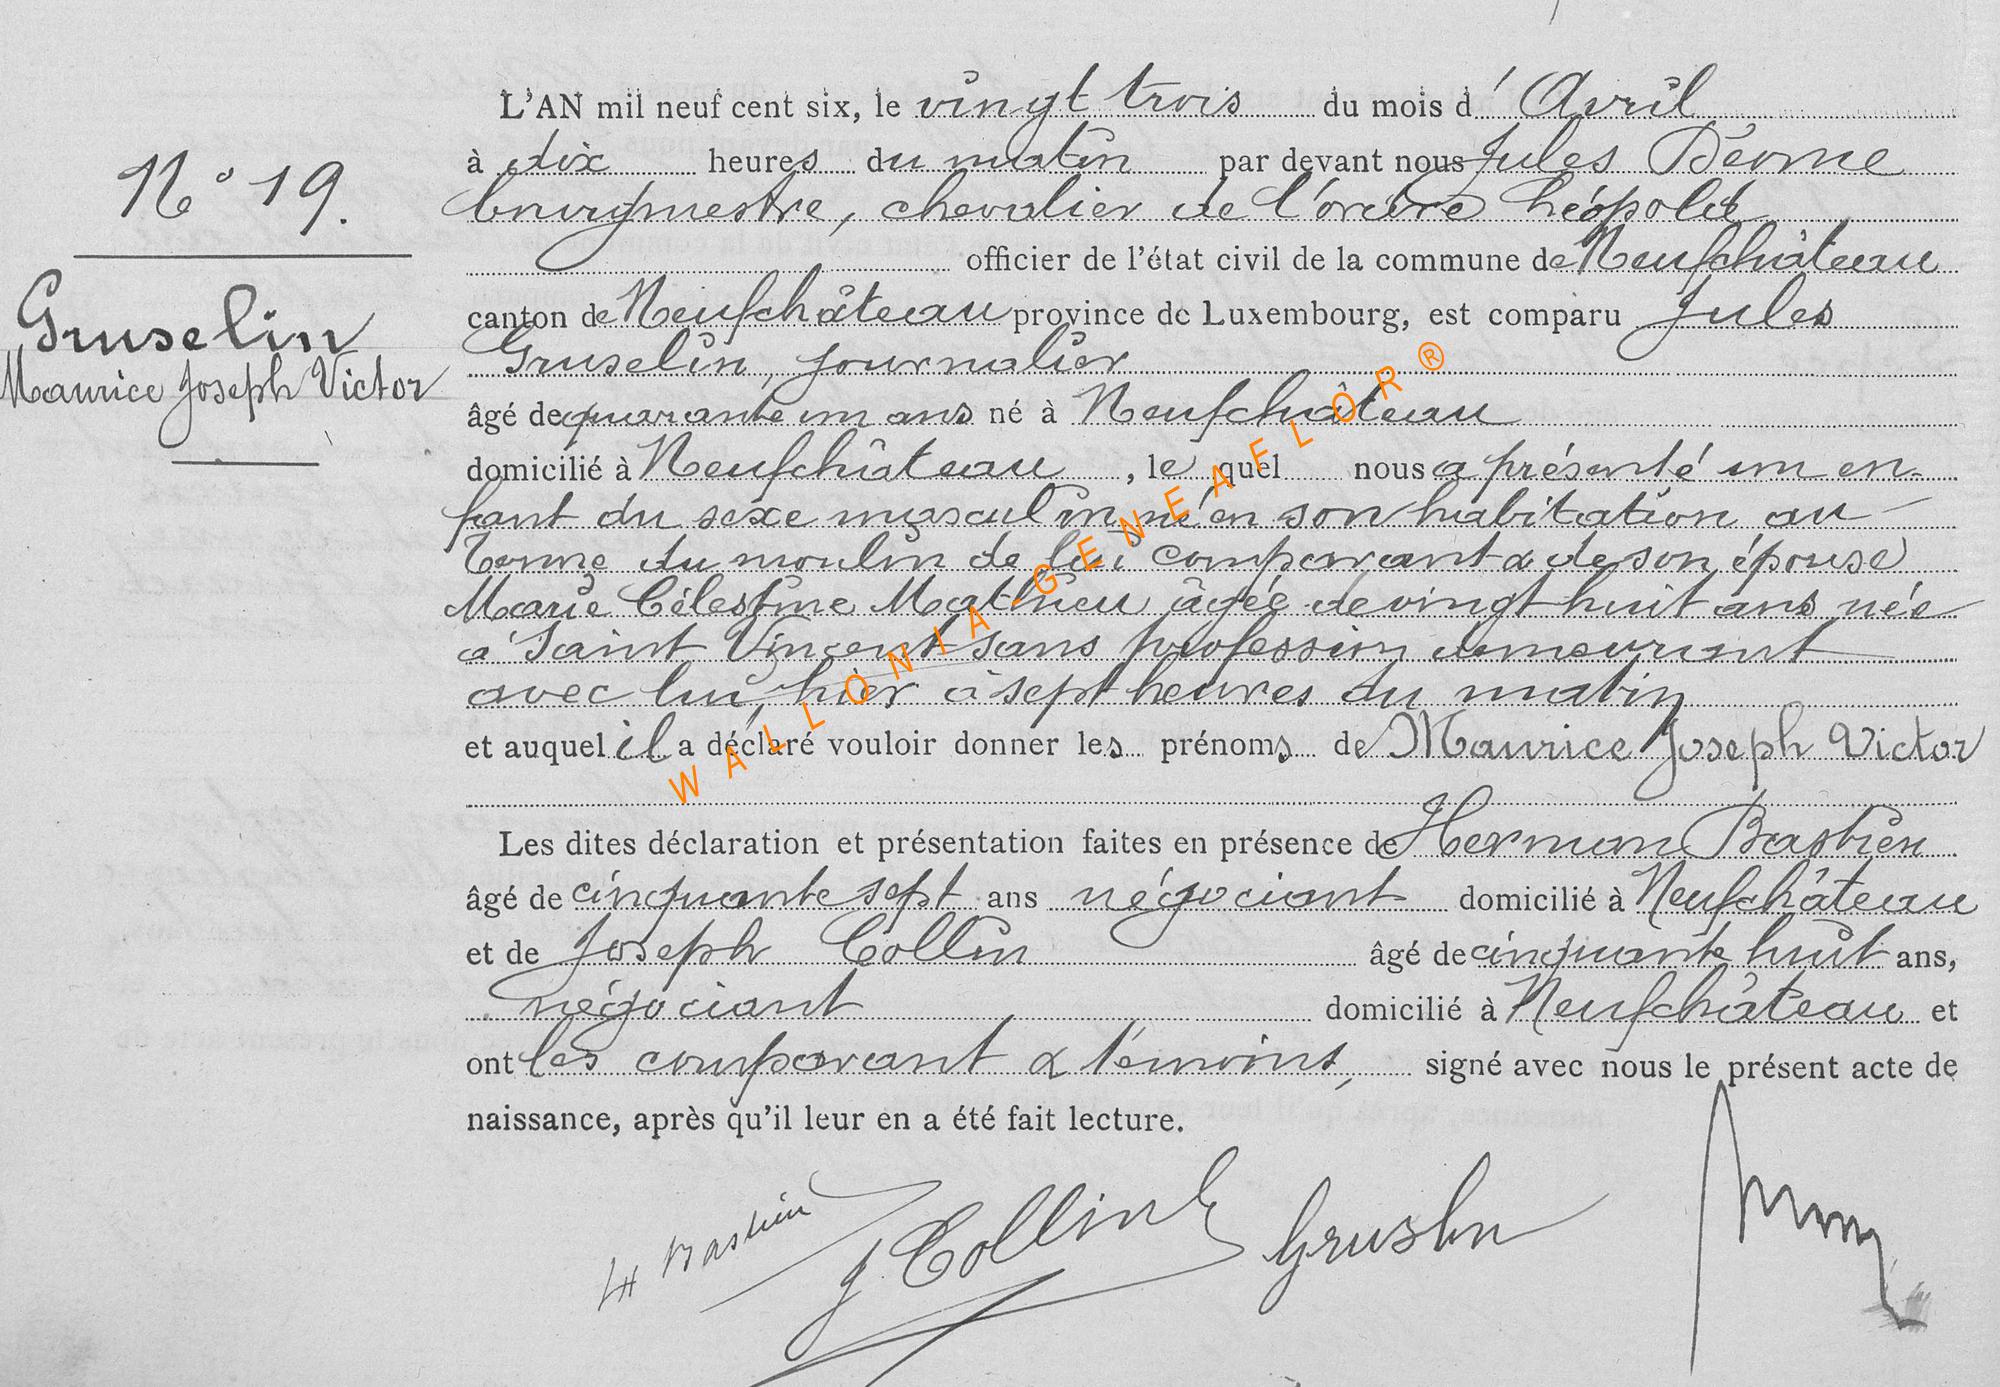 L'AN mil neuf cent six, le vingt trois du mois d'Avril
à dix heures du matin par devant nous Jules
bourgmestre, chevalier de l'ordre Léopold
officier de l'état civil de la commune de Neufchâteau
canton de Neufchâteau province de Luxembourg, est comparu Jules
Gruselin, journalier
âgé de quarante un ans né à Neufchâteau
domicilié à Neufchâteau, le quel nous a présenté un en-
fant du sexe masculin né en son habitation au
Terme du moulin de lui comparant & de son épouse
Marie Célestine Mathieu âgée de vingt huit ans née
à Saint Vincent sans profession demeurant
avec lui, hier à sept heures du matin
et auquel il a déclaré vouloir donner les prénoms de Maurice Joseph Victor
Les dites déclaration et présentation faites en présence de Herman Bastien
âgé de cinquante sept ans négociant domicilié à Neufchâteau
et de Joseph Collin âgé de cinquante huit ans,
négociant domicilié à Neufchâteau et
ont les comparant & témoins, signé avec nous le présent acte de
naissance, après qu'il leur en a été fait lecture.
N° 19.
Gruselin
Maurice Joseph Victor
H Bastien
J Collin
Gruslin
WALLONIA-GENEAELOR®